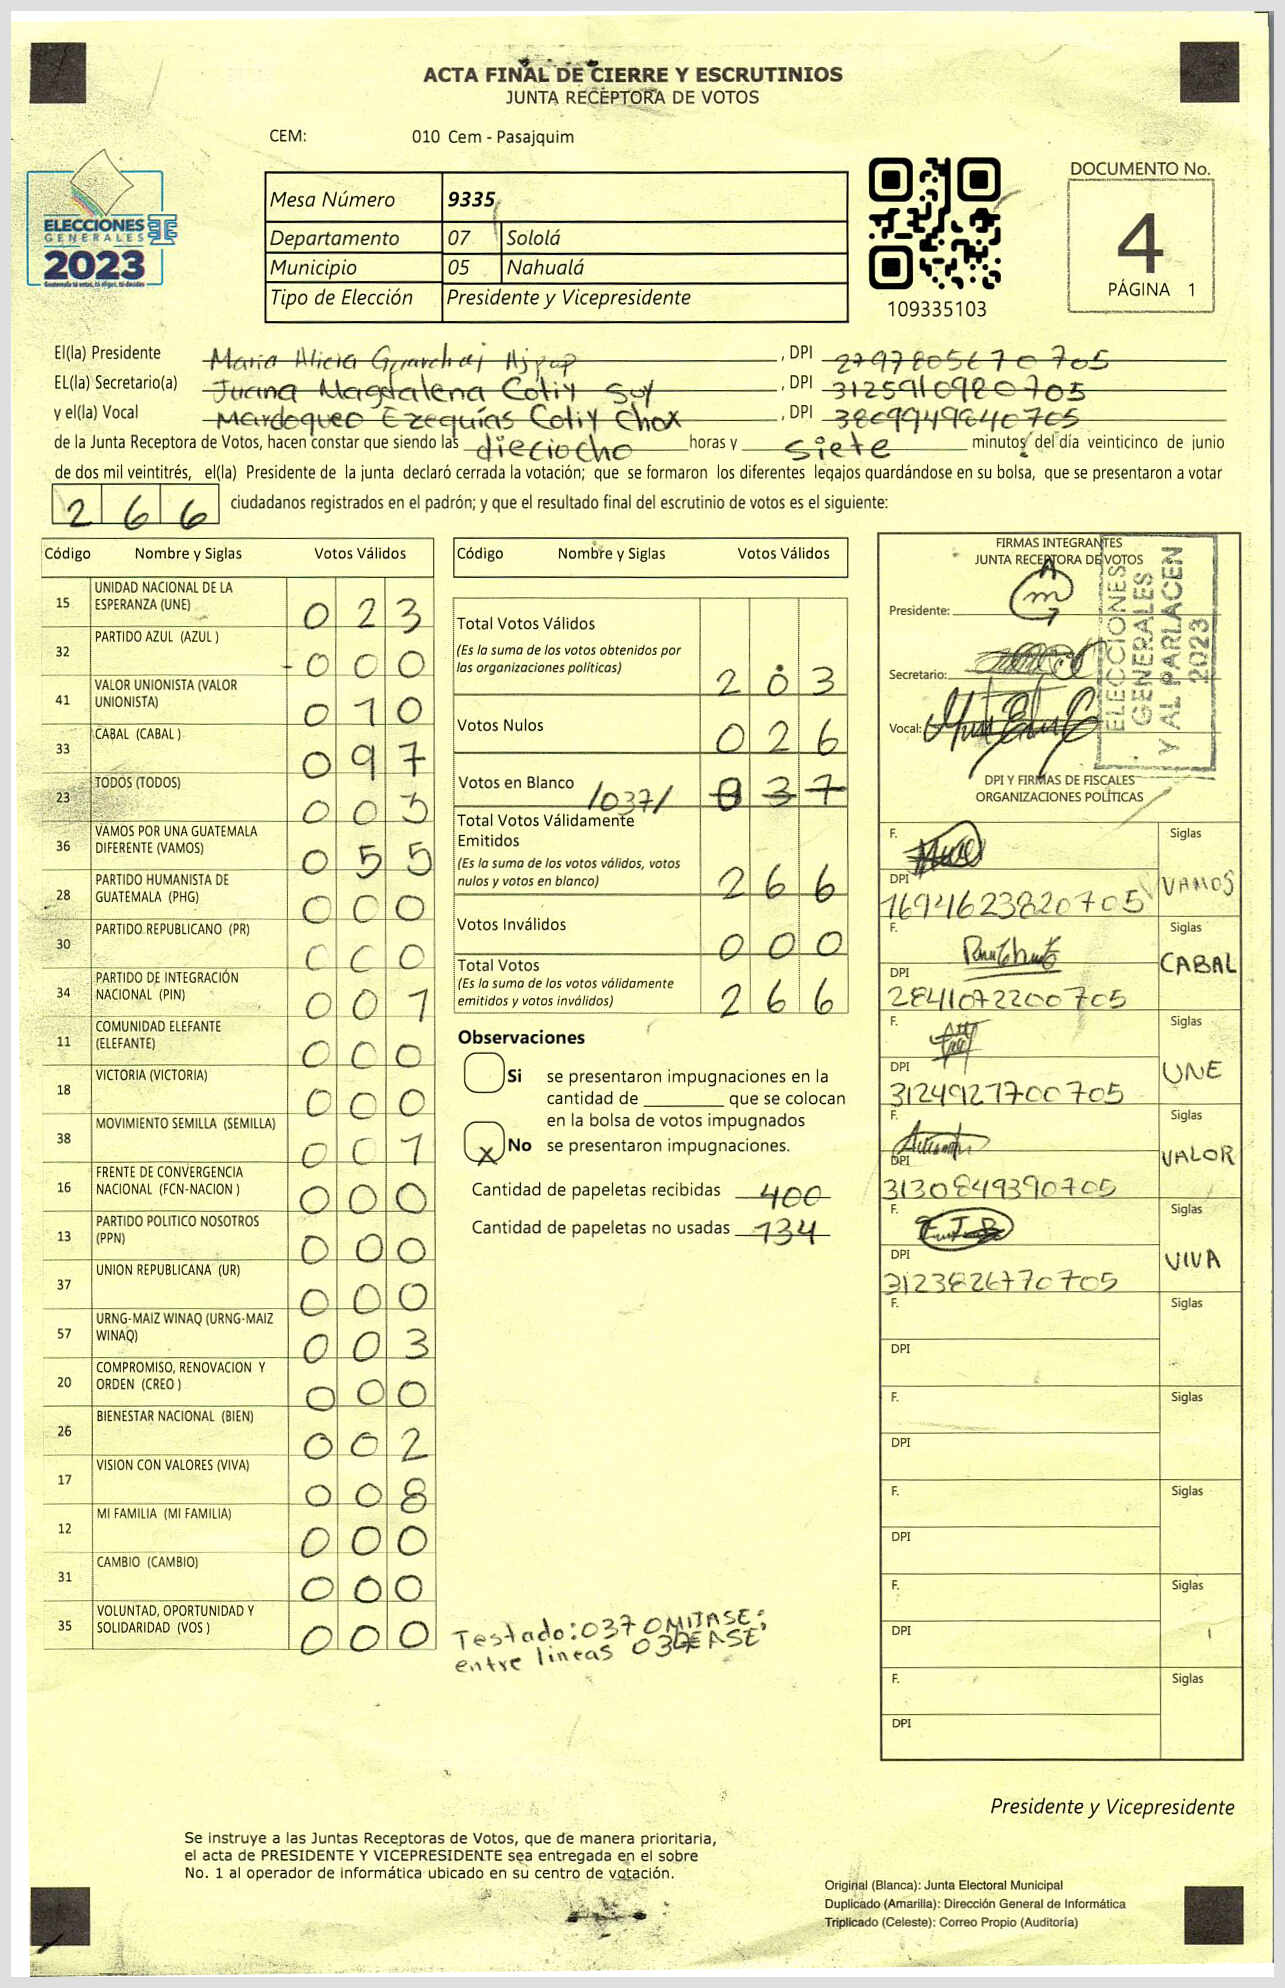 ACTA FINAL DE CIERRE Y ESCRUTINIOS
JUNTA RECEPTORA DE VOTOS
CEM: 010 Cem - Pasajquim
ELECCIONES
GENERALES
2023
Mesa Número 9335
Departamento 07 Sololá
Municipio 05 Nahualá
Tipo de Elección Presidente y Vicepresidente
109335103
DOCUMENTO No.
4
PÁGINA 1
El(la) Presidente Maria Alicia Guarchaj Ajpop , DPI 2797805670705
EL(la) Secretario(a) Juana Magdalena Cotiy Suy , DPI 3125910980705
y el(la) Vocal Mardoqueo Ezequías Cotiy Chox , DPI 3809949840705
de la Junta Receptora de Votos, hacen constar que siendo las dieciocho horas y siete minutos del día veinticinco de junio
de dos mil veintitrés, el(la) Presidente de la junta declaró cerrada la votación; que se formaron los diferentes legajos quardándose en su bolsa, que se presentaron a votar
266 ciudadanos registrados en el padrón; y que el resultado final del escrutinio de votos es el siguiente:
Código Nombre y Siglas Votos Válidos
15 UNIDAD NACIONAL DE LA ESPERANZA (UNE) 023
32 PARTIDO AZUL (AZUL ) 000
41 VALOR UNIONISTA (VALOR UNIONISTA) 010
33 CABAL (CABAL ) 097
23 TODOS (TODOS) 003
36 VAMOS POR UNA GUATEMALA DIFERENTE (VAMOS) 055
28 PARTIDO HUMANISTA DE GUATEMALA (PHG) 000
30 PARTIDO REPUBLICANO (PR) 000
34 PARTIDO DE INTEGRACIÓN NACIONAL (PIN) 001
11 COMUNIDAD ELEFANTE (ELEFANTE) 000
18 VICTORIA (VICTORIA) 000
38 MOVIMIENTO SEMILLA (SEMILLA) 001
16 FRENTE DE CONVERGENCIA NACIONAL (FCN-NACION ) 000
13 PARTIDO POLITICO NOSOTROS (PPN) 000
37 UNION REPUBLICANA (UR) 000
57 URNG-MAIZ WINAQ (URNG-MAIZ WINAQ) 003
20 COMPROMISO, RENOVACION Y ORDEN (CREO ) 000
26 BIENESTAR NACIONAL (BIEN) 002
17 VISION CON VALORES (VIVA) 008
12 MI FAMILIA (MI FAMILIA) 000
31 CAMBIO (CAMBIO) 000
35 VOLUNTAD, OPORTUNIDAD Y SOLIDARIDAD (VOS ) 000
Código Nombre y Siglas Votos Válidos
Total Votos Válidos
(Es la suma de los votos obtenidos por
las organizaciones políticas) 203
Votos Nulos 026
Votos en Blanco /037/ 037
Total Votos Válidamente
Emitidos
(Es la suma de los votos válidos, votos
nulos y votos en blanco) 266
Votos Inválidos 000
Total Votos
(Es la suma de los votos válidamente
emitidos y votos inválidos) 266
Observaciones
Si se presentaron impugnaciones en la
cantidad de ________ que se colocan
en la bolsa de votos impugnados
X No se presentaron impugnaciones.
Cantidad de papeletas recibidas 400
Cantidad de papeletas no usadas 134
Testado: 037 OMITASE:
entre lineas 037 LEASE
FIRMAS INTEGRANTES
JUNTA RECEPTORA DE VOTOS
Presidente:
Secretario:
Vocal:
ELECCIONES
GENERALES
Y AL PARLACEN
2023
DPI Y FIRMAS DE FISCALES
ORGANIZACIONES POLÍTICAS
F. Siglas
DPI VAMOS
16941623820705
F. Siglas
DPI CABAL
2841072200705
F. Siglas
DPI UNE
3124927700705
F. Siglas
DPI VALOR
3130849390705
F. Siglas
DPI VIVA
3123826770705
F. Siglas
DPI
F. Siglas
DPI
F. Siglas
DPI
F. Siglas
DPI
F. Siglas
DPI
Presidente y Vicepresidente
Se instruye a las Juntas Receptoras de Votos, que de manera prioritaria,
el acta de PRESIDENTE Y VICEPRESIDENTE sea entregada en el sobre
No. 1 al operador de informática ubicado en su centro de votación.
Original (Blanca): Junta Electoral Municipal
Duplicado (Amarilla): Dirección General de Informática
Triplicado (Celeste): Correo Propio (Auditoría)